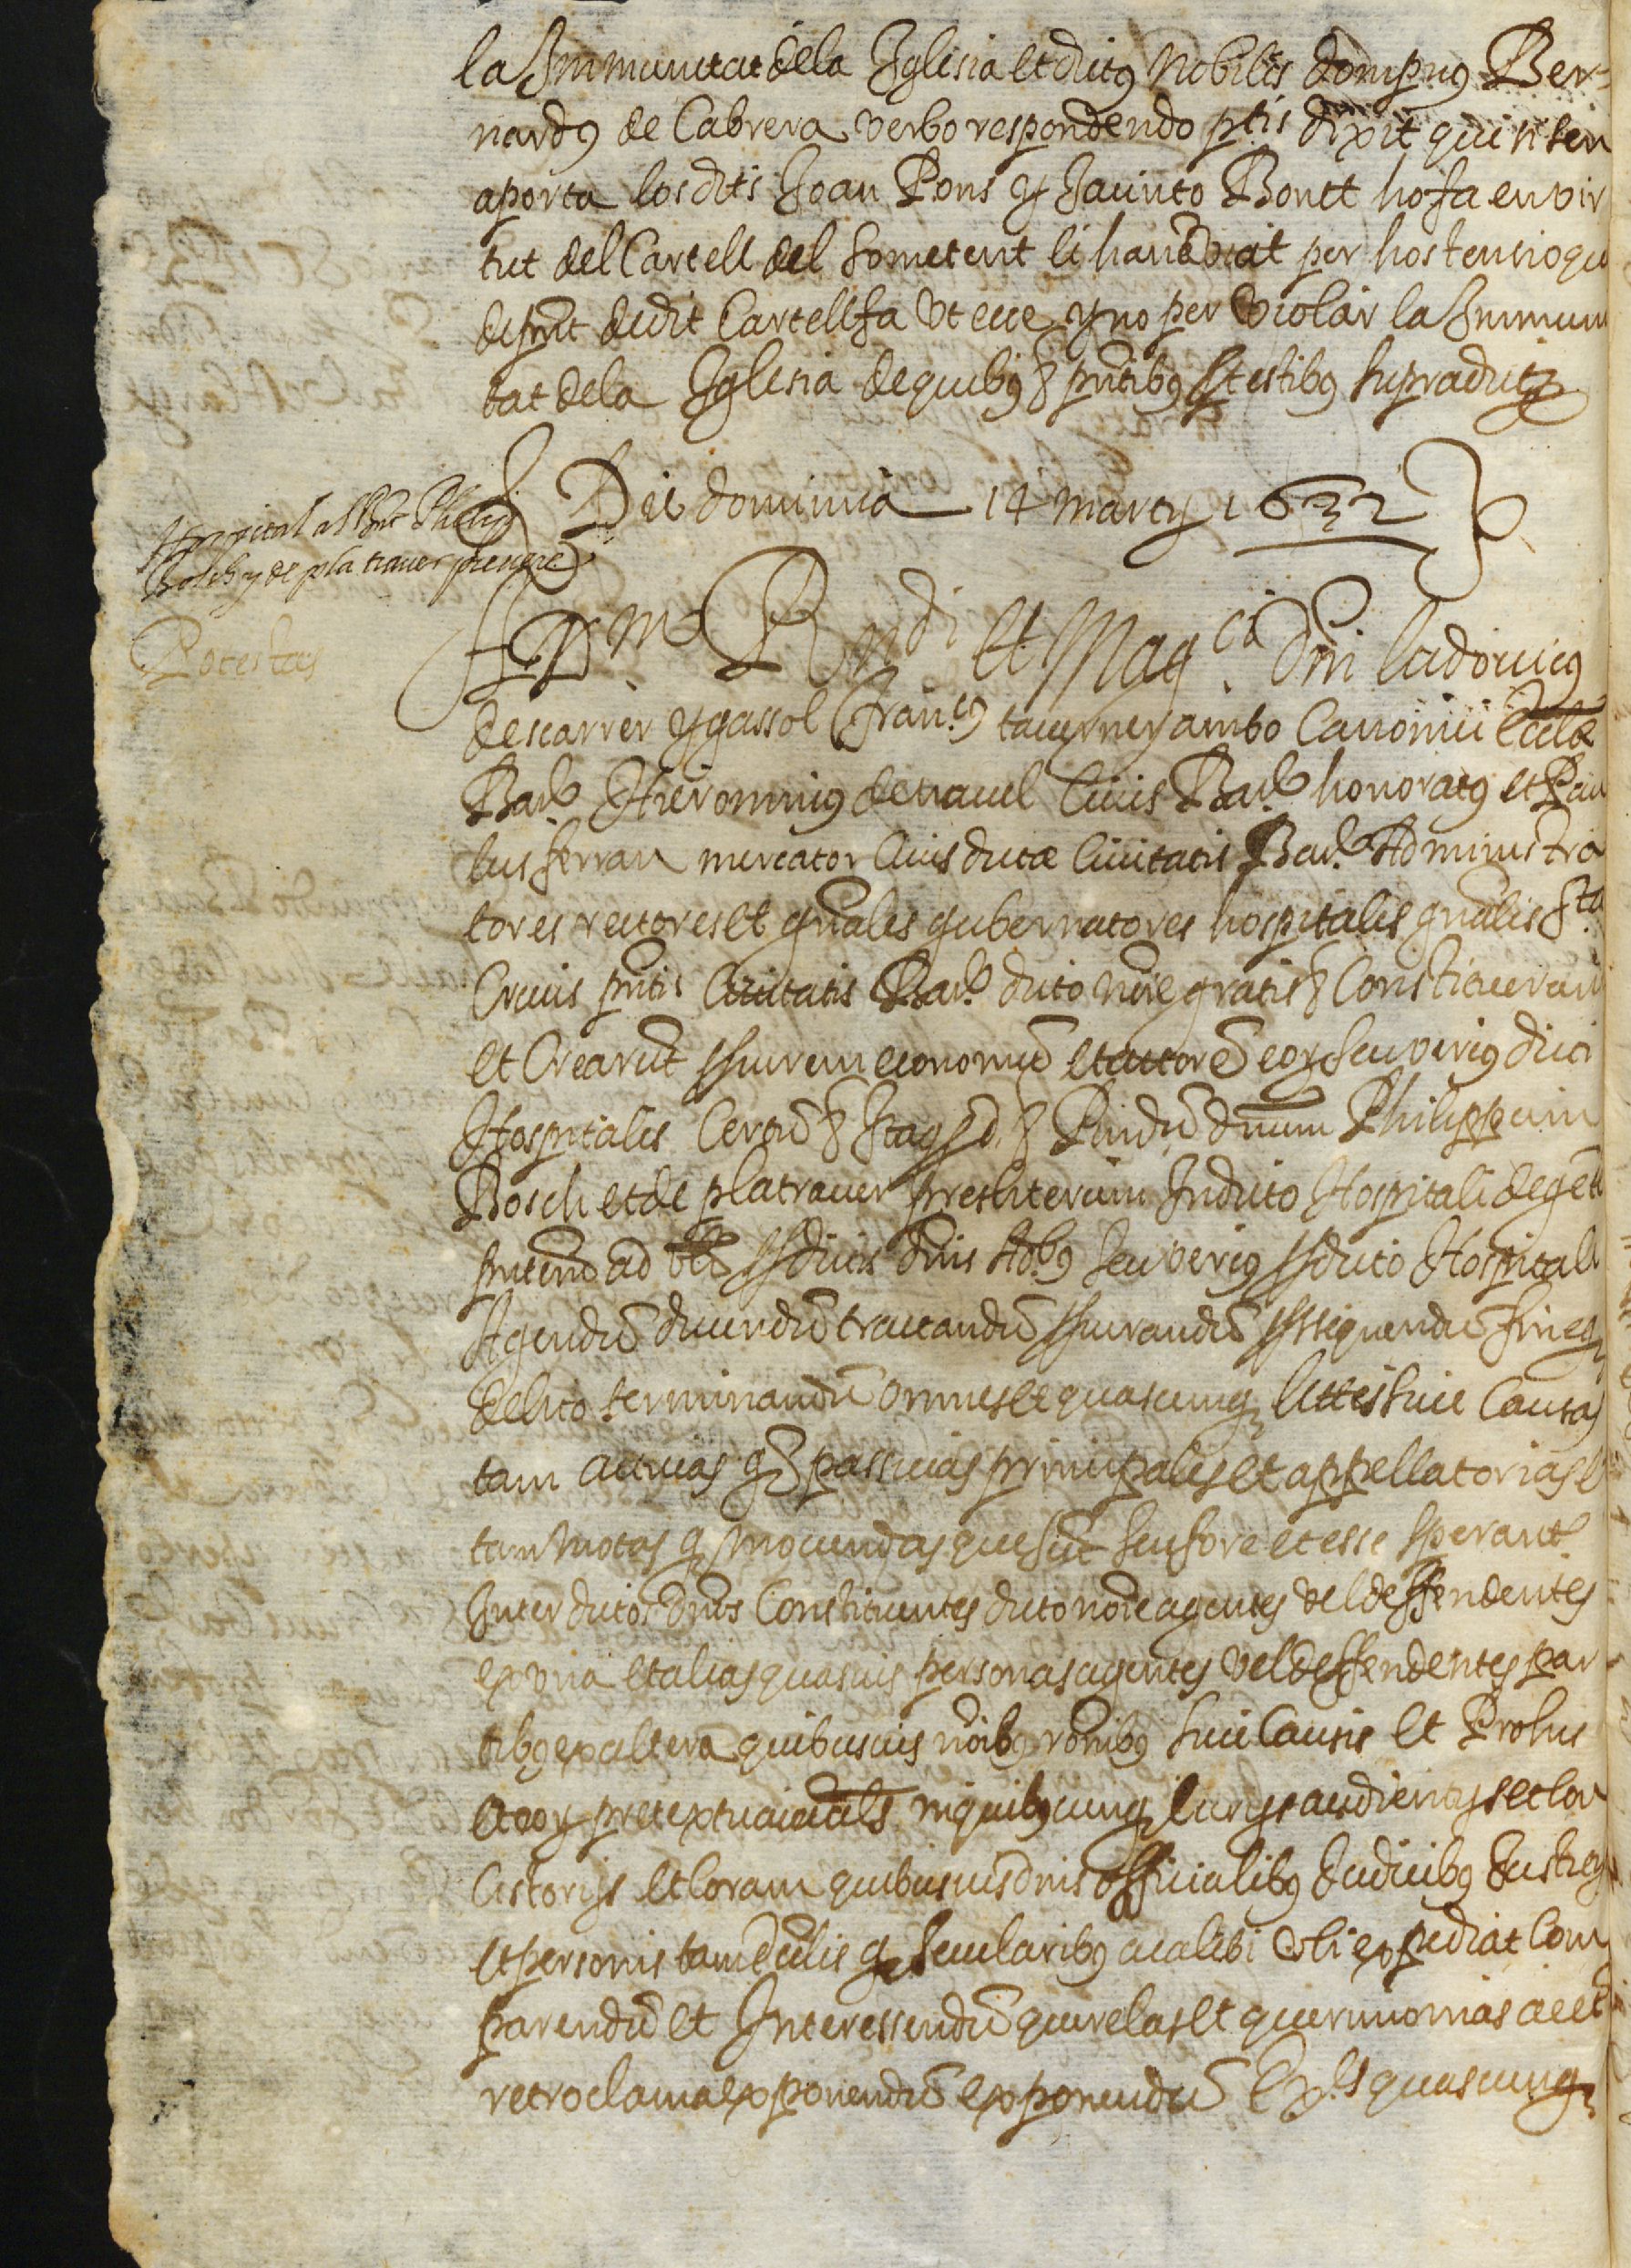 la Immunitat dela Iglesia et dictus Nobilis dompnus Ber-
nardus de Cabrera verbo respondendo ptis dixit que si sen
aporta los dits Joan Pons y Jacinto Bonet ho fa en vir
tut del Cartell del sometent li han enviat per hostensio que
de pnt dedit Cartell fa ut ecce y no per violar la Immuni
tat dela Iglesia de quibus & pntibus testibus supradictis
Die dominica 14 marty 1632
Hospital al Rnt Phelip
Bosch y de platraver prevere
Potestas
Adm Rndi et Magci dni ludovicus
descarrer y gassol Francus taverner ambo Canonici Eccle
Barne Hieronimus de travel Civis Barne honoratus et Pau
lus ferran mercator Civis dictae Civitatis Barne Administra
tores rectores et gnales gubernatores hospitalis gnalis Sta
Crucis pntis Civitatis Barne dicto noie gratis & Constituerunt
et Crearunt economu et actore eor seu verius dicti
Hospitalis Certu & Itaq qd & Rndu dnum Philippum
Bosch et de platraver presbiterum In dicto Hospitali degete
pntem ad dictis dnis Adbus seu verius dicto Hospitali
Agendu ducendu tractandu fineq
debito terminandu omnes et quascunq lites sive Causas
tam activas q passivas principales et appellatorias et
tam motas q movendas que sut seu fore et esse sperant
Inter dictos dnos Constituentes dicto noie agentes vel deffendentes
ex una et alias quasvis personas agentes vel deffendentes par
tibus ex altera quibusvis noibus ronibus sive Causis et
et eor pretextu in quibuscunq Curys audientys et Con
cistorys et Coram quibusvis dnis officialibus Judicibus
et personis tam Eccliis q secularibus ac alibi ubi expediat Com
parendu et Interessendu querelas et querimonias ac et
retroclama exponendu exponendu quascunq